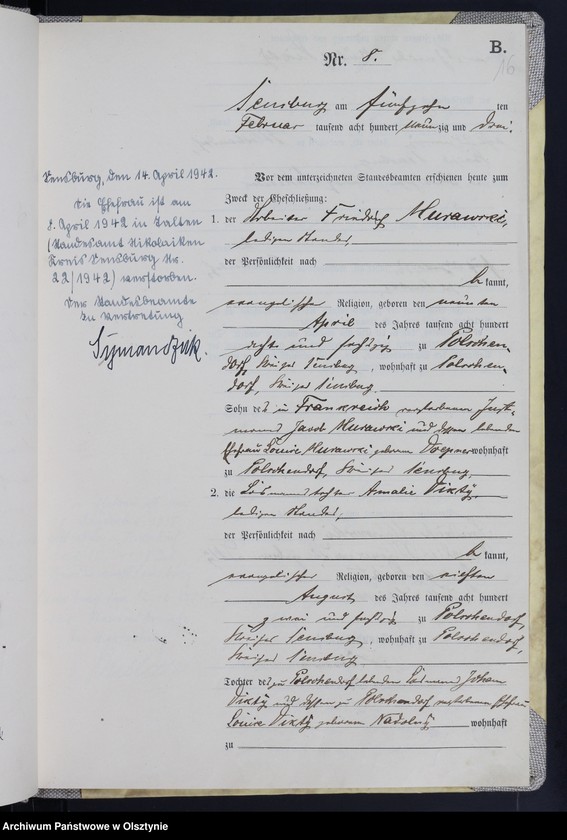 B.
16
Nr. 8.
Sensburg am fünfzehn ten
Februar tausend acht hundert neunzig und drei.
Vor dem unterzeichneten Standesbeamten erschienen heute zum
Zweck der Eheschließung:
1. der Arbeiter Friedrich Murawski,
ledigen Standes,
der Persönlichkeit nach
be kannt,
evangelischer Religion, geboren den neunten
April des Jahres tausend acht hundert
sechs und sechzig zu Polschen-
dorf, Kreises Sensburg, wohnhaft zu Polschen-
dorf, Kreises Sensburg
Sohn des in Frankreich verstorbenen Inst-
manns Murawski und dessen lebenden
Ehefrau Louise Murawski geborenen wohnhaft
zu Polschendorf, Kreises Sensburg
2. die Losmannstochter Amalie Dikty
ledigen Standes,
der Persönlichkeit nach
be kannt,
evangelischer Religion, geboren den
August des Jahres tausend acht hundert
zwei und sechzig zu Polschendorf,
Kreises Sensburg, wohnhaft zu Polschendorf,
Kreises Sensburg
Tochter des zu Polschendorf lebenden Losmanns Johann
Dikty und dessen zu Polschendorf verstorbenen Ehefrau
Louise Dikty geborenen Nadolny wohnhaft
zu
Sensburg, den 14. April 1942.
Die Ehefrau ist am
8. April 1942 in Talten
(Standesamt Nikolaiken
Kreis Sensburg Nr.
22/1942) verstorben.
Der Standesbeamte
In Vertretung
Symanzik.
Archiwum Państwowe w Olsztynie